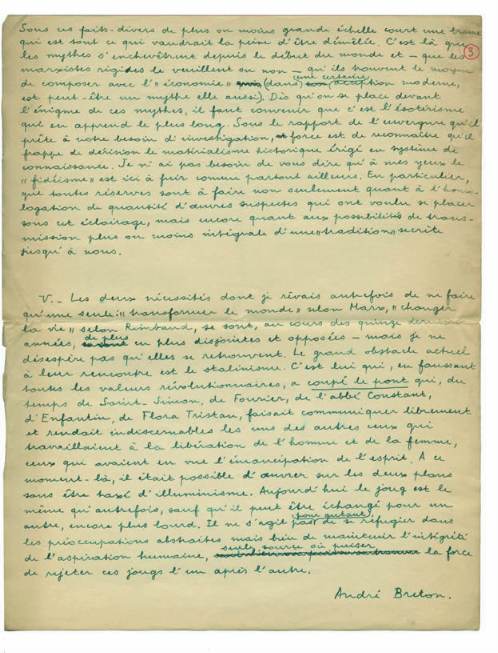 Sous ces faits-divers de plus ou moins grande échelle court une trame
qui est tout ce qui vaudrait la peine d'être démêlée. C'est là que
3
les mythes s'enchevêtrent depuis le début du monde et – que les
marxistes rigides le veuillent ou non – qu'ils trouvent le moyen
une certaine
de composer avec l'« économie » (dans acception moderne,
est peut-être un mythe elle aussi). Dès qu'on se place devant
l'énigme de ces mythes, il faut convenir que c'est l'ésotérisme
qui en apprend le plus long. Sous le rapport de l'envergure qu'il
prête à notre besoin d'investigation, force est de reconnaître qu'il
frappe de dérision le matérialisme historique érigé en système de
connaissance. Je n'ai pas besoin de vous dire qu'à mes yeux le
« fidéisme » est ici à fuir comme partout ailleurs. En particulier,
que toutes réserves sont à faire non seulement quant à l'homo-
logation de quantité d'œuvres suspectes qui ont voulu se placer
sous cet éclairage, mais encore quant aux possibilités de trans-
mission plus ou moins intégrale d'une « tradition » secrète
jusqu'à nous.
V. – Les deux nécessités dont je rêvais autrefois de ne faire
qu'une seule : « transformer le monde » selon Marx, « changer
la vie » selon Rimbaud, se sont, au cours des quinze dernières
de plus
années, en plus disjointes et opposées – mais je ne
désespère pas qu'elles se retrouvent. Le grand obstacle actuel
à leur rencontre est le stalinisme. C'est lui qui, en faussant
toutes les valeurs révolutionnaires, a coupé le pont qui, du
temps de Saint-Simon, de Fourier, de l'abbé Constant,
d'Enfantin, de Flora Tristan, faisait communiquer librement
et rendait indiscernables les uns des autres ceux qui
travaillaient à la libération de l'homme et de la femme,
ceux qui avaient en vue l'émancipation de l'esprit. A ce
moment-là, il était possible d'œuvrer sur les deux plans
sans être taxé d'illuminisme. Aujourd'hui le joug est le
même qu'autrefois, sauf qu'il peut être échangé pour un
pour autant
autre, encore plus lourd. Il ne s'agit pas de se réfugier dans
les préoccupations abstraites mais bien de maintenir l'intégrité
seule source où puiser
de l'aspiration humaine, la force
de rejeter ces jougs l'un après l'autre.
André Breton.